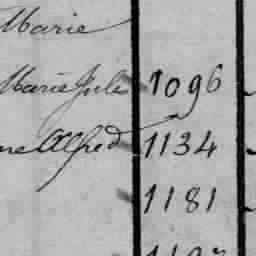 Marie
Marie Jule 1096
ne Alfred 1134
1181